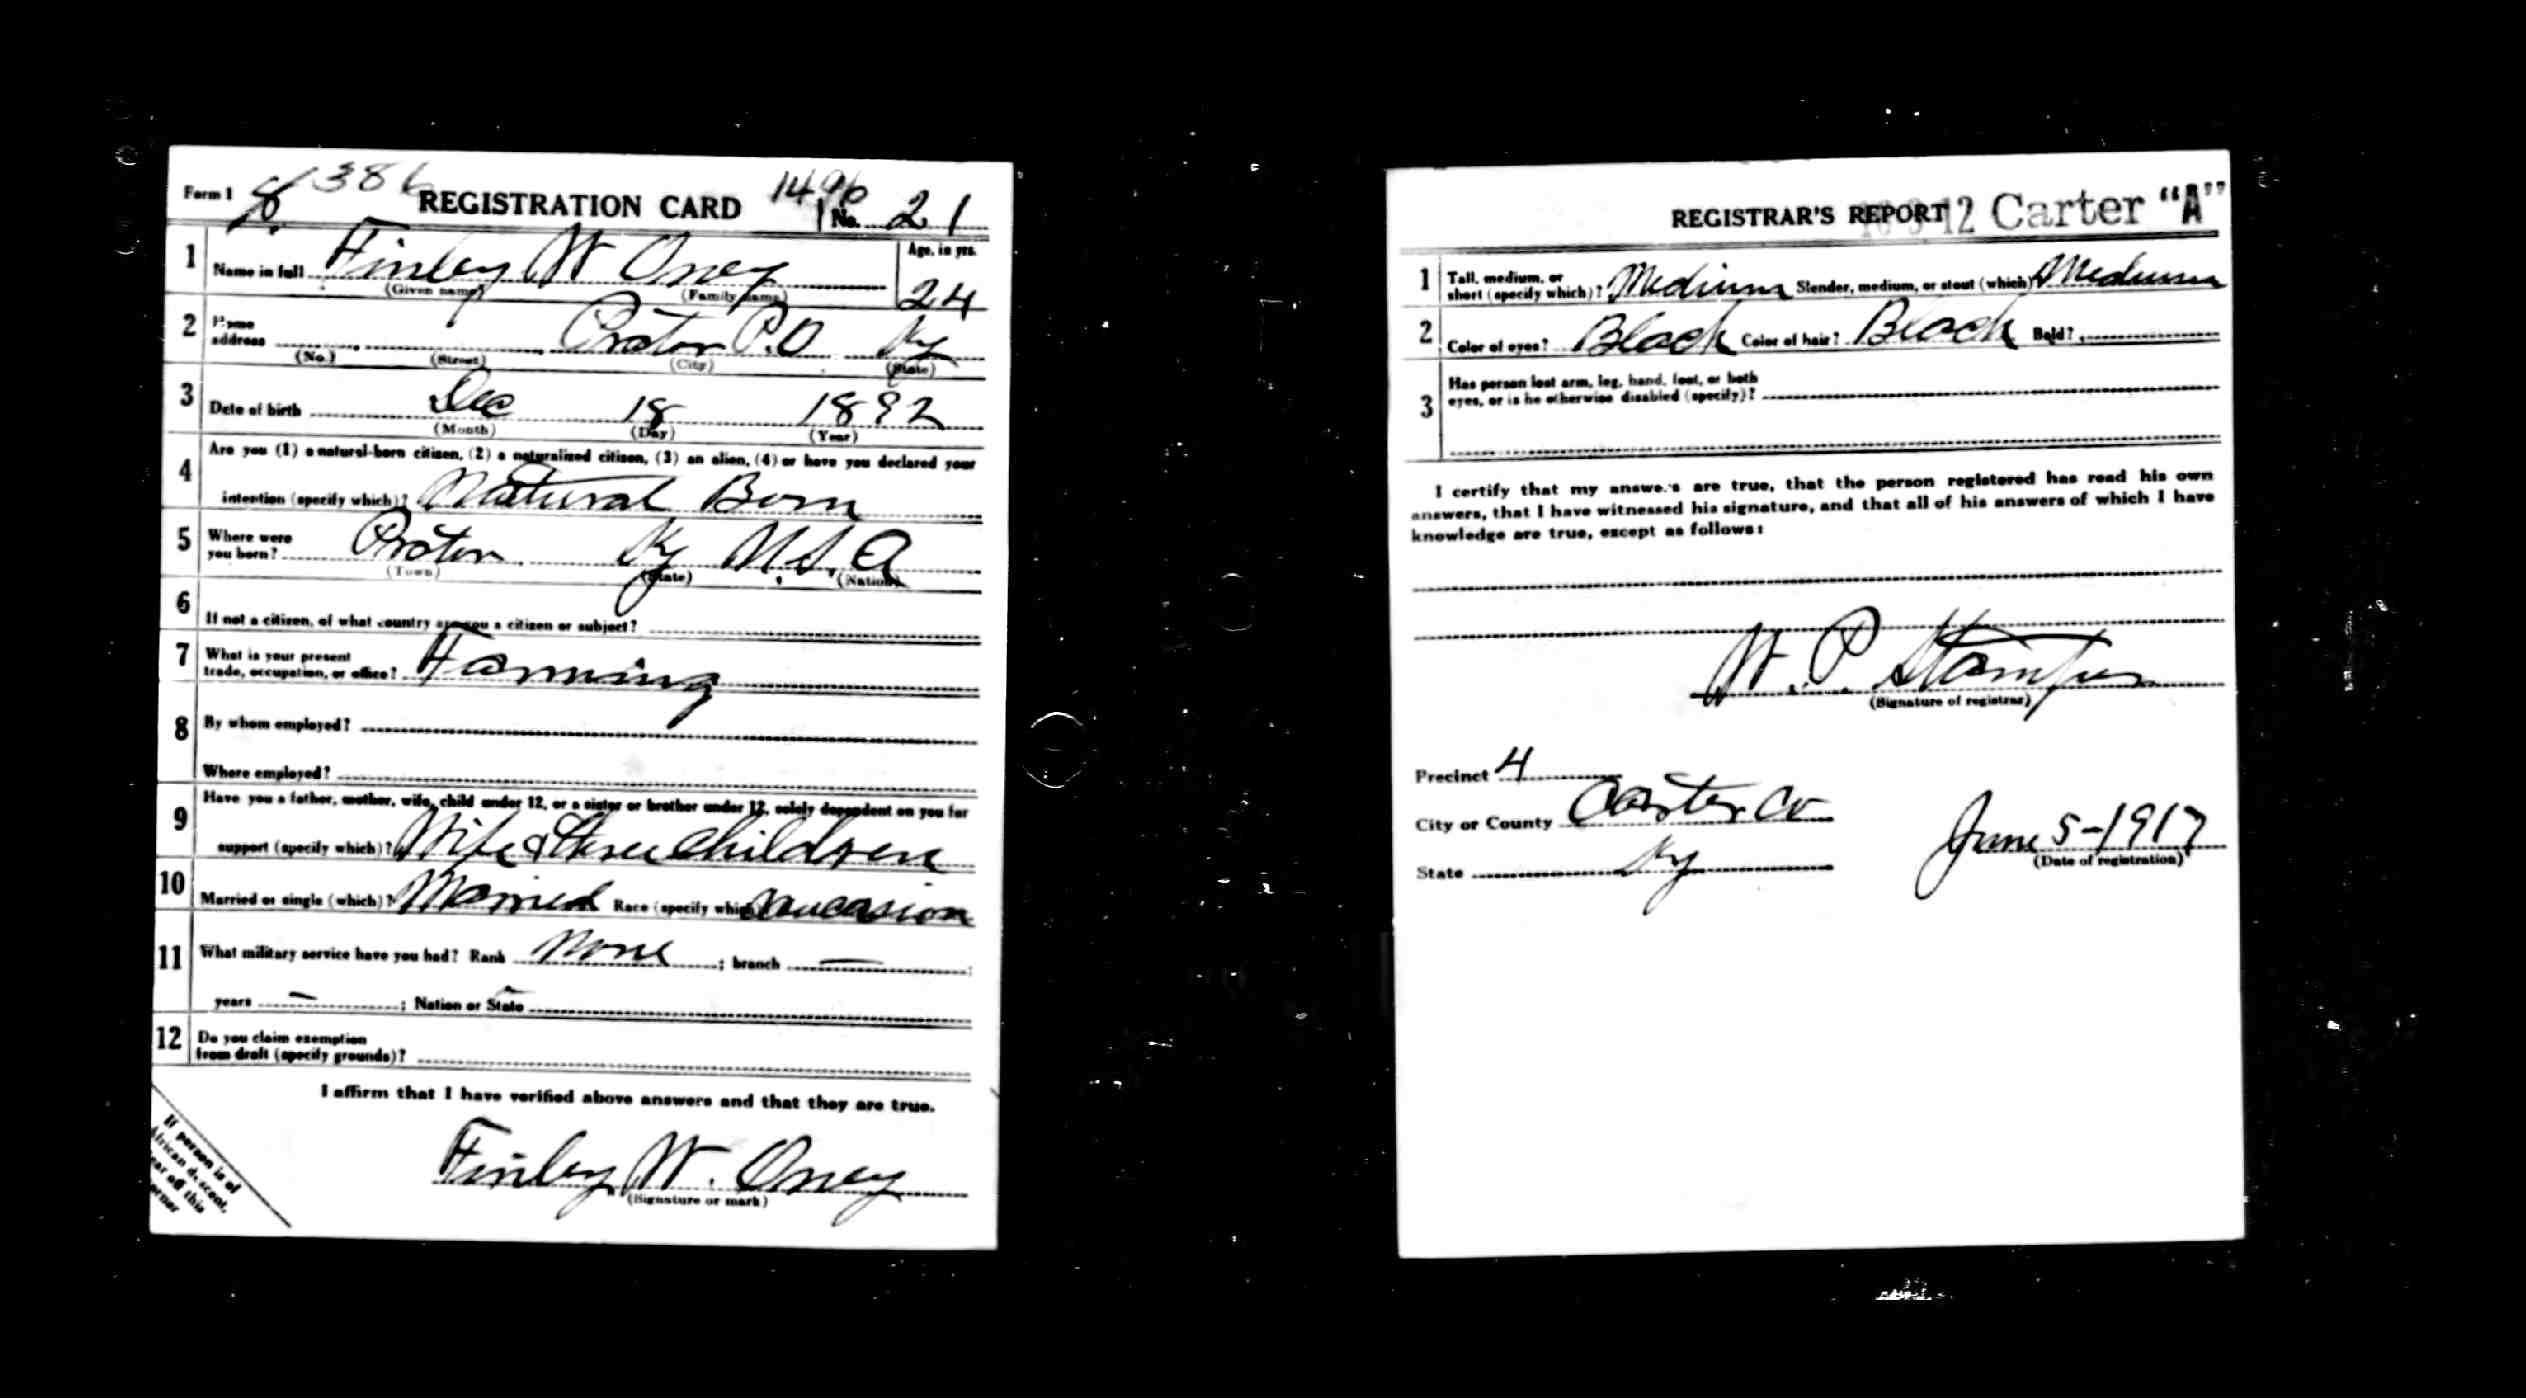 Form 1 386 REGISTRATION CARD 1496 No. 21
1 Name in full Finley W Oney Age, in yrs.
(Given name) (Family name) 24
2 Home address Proton P.O Ky
(No.) (Street) (City) (State)
3 Date of birth Dec 18 1892
(Month) (Day) (Year)
4 Are you (1) a natural-born citizen, (2) a naturalized citizen, (3) an alien, (4) or have you declared your
intention (specify which)? Natural Born
5 Where were you born? Proton Ky U.S.A
(Town) (State) (Nation)
6 If not a citizen, of what country are you a citizen or subject?
7 What is your present
trade, occupation, or office? Farming
8 By whom employed?
Where employed?
9 Have you a father, mother, wife, child under 12, or a sister or brother under 12, solely dependent on you for
support (specify which)? Wife & three children
10 Married or single (which)? Married Race (specify which) Caucasion
11 What military service have you had? Rank None ; branch —
years — ; Nation or State
12 Do you claim exemption
from draft (specify grounds)?
I affirm that I have verified above answers and that they are true.
Finley W. Oney
(Signature or mark)
If person is of
African descent,
tear off this
corner
REGISTRAR'S REPORT 12 Carter "A"
1 Tall, medium, or
short (specify which)? Medium Slender, medium, or stout (which) Medium
2 Color of eyes? Black Color of hair? Black Bald?
3 Has person lost arm, leg, hand, foot, or both
eyes, or is he otherwise disabled (specify)?
I certify that my answers are true, that the person registered has read his own
answers, that I have witnessed his signature, and that all of his answers of which I have
knowledge are true, except as follows:
W. P. Stamper
(Signature of registrar)
Precinct 4
City or County Carter Co
State Ky June 5-1917
(Date of registration)